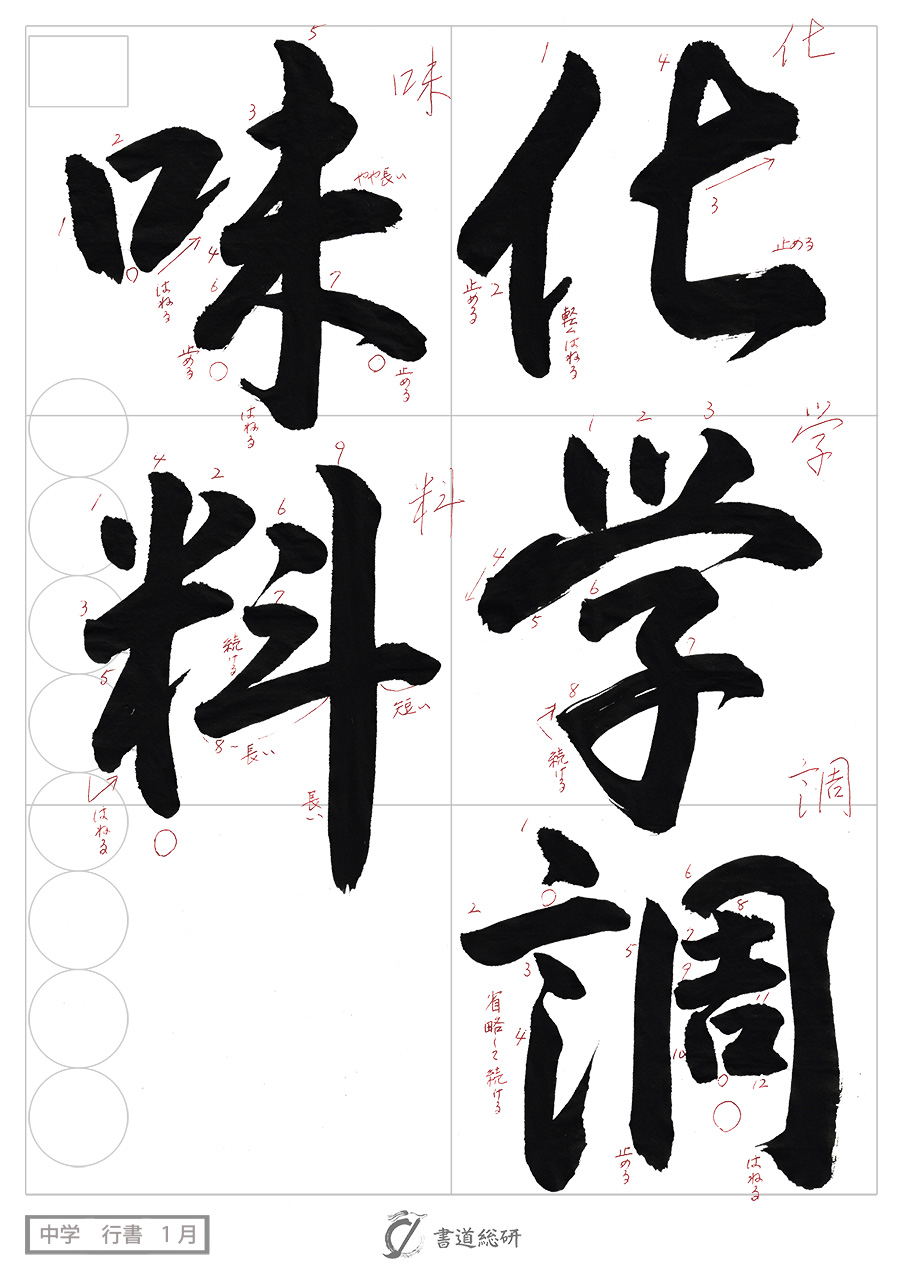 化学調
味料
化
1
4
3
2
止める
止める
軽くはねる
学
1
2
3
4
5
6
7
8
続ける
調
1
2
3
4
5
6
7
8
9
10
11
12
省略して続ける
止める
はねる
味
1
2
3
4
5
6
7
やや長い
はねる
止める
止める
はねる
料
1
2
3
4
5
6
7
8
9
続ける
長い
短い
長い
はねる
中学 行書 1月
書道総研